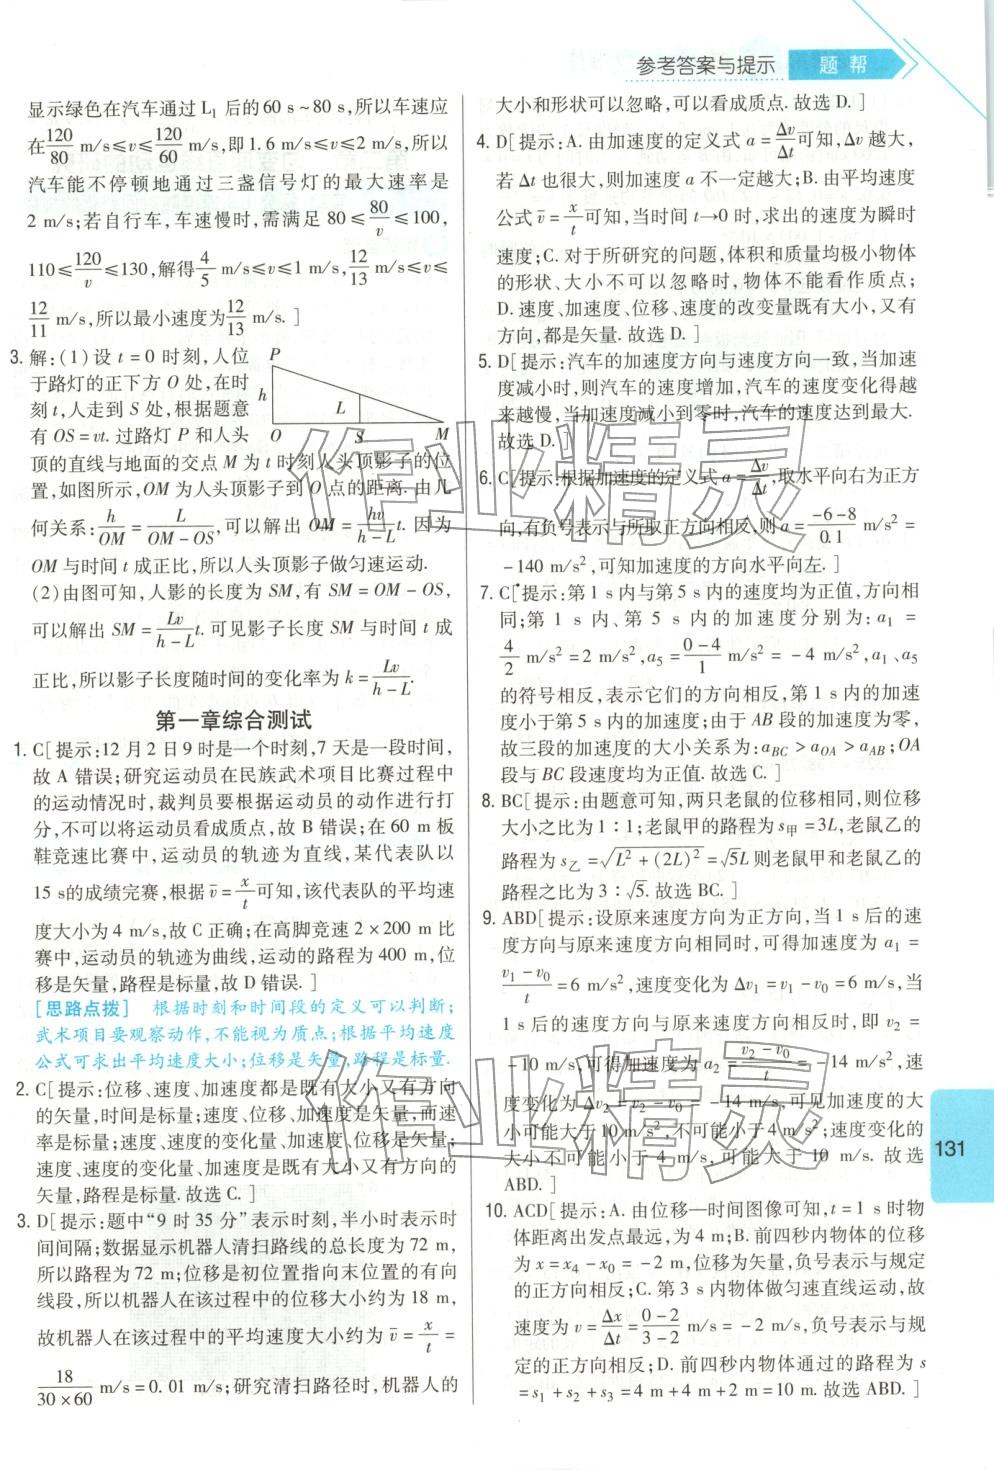 参考答案与提示 题 帮
显示绿色在汽车通过 L₁ 后的60 s~80 s,所以车速应
在120/80 m/s≤v≤120/60 m/s,即1.6 m/s≤v≤2 m/s,所以
汽车能不停顿地通过三盏信号灯的最大速率是
2 m/s;若自行车,车速慢时,需满足 80≤80/v≤100,
110≤120/v≤130,解得4/5 m/s≤v≤1 m/s,12/13 m/s≤v≤
12/11 m/s,所以最小速度为12/13 m/s. ]
3. 解:(1)设 t=0 时刻,人位
于路灯的正下方 O 处,在时
刻 t,人走到 S 处,根据题意
有 OS=vt. 过路灯 P 和人头
P
h
L
O S M
顶的直线与地面的交点 M 为 t 时刻人头顶影子的位
置,如图所示,OM为人头顶影子到 O 点的距离. 由几
何关系:h/OM=L/(OM-OS),可以解出 OM=hv/(h-L)t. 因为
OM与时间 t 成正比,所以人头顶影子做匀速运动.
(2)由图可知,人影的长度为 SM,有 SM=OM-OS,
可以解出 SM=Lv/(h-L)t. 可见影子长度 SM 与时间 t 成
正比,所以影子长度随时间的变化率为 k=Lv/(h-L).
第一章综合测试
1. C[提示:12月2日9时是一个时刻,7天是一段时间,
故 A 错误;研究运动员在民族武术项目比赛过程中
的运动情况时,裁判员要根据运动员的动作进行打
分,不可以将运动员看成质点,故 B 错误;在 60 m 板
鞋竞速比赛中,运动员的轨迹为直线,某代表队以
15 s的成绩完赛,根据v̄=x/t可知,该代表队的平均速
度大小为 4 m/s,故 C 正确;在高脚竞速 2×200 m 比
赛中,运动员的轨迹为曲线,运动的路程为 400 m,位
移是矢量,路程是标量,故 D 错误. ]
[思路点拨] 根据时刻和时间段的定义可以判断;
武术项目要观察动作,不能视为质点;根据平均速度
公式可求出平均速度大小;位移是矢量,路程是标量.
2. C[提示:位移、速度、加速度都是既有大小又有方向
的矢量,时间是标量;速度、位移、加速度是矢量,而速
率是标量;速度、速度的变化量、加速度、位移是矢量;
速度、速度的变化量、加速度是既有大小又有方向的
矢量,路程是标量. 故选 C. ]
3. D[提示:题中“9 时 35 分”表示时刻,半小时表示时
间间隔;数据显示机器人清扫路线的总长度为 72 m,
所以路程为 72 m;位移是初位置指向末位置的有向
线段,所以机器人在该过程中的位移大小约为 18 m,
故机器人在该过程中的平均速度大小约为 v̄=x/t=
18/(30×60) m/s=0.01 m/s;研究清扫路径时,机器人的
大小和形状可以忽略,可以看成质点. 故选 D. ]
4. D[提示:A. 由加速度的定义式 a=Δv/Δt可知,Δv 越大,
若 Δt 也很大,则加速度 a 不一定越大;B. 由平均速度
公式 v̄=x/t可知,当时间 t→0 时,求出的速度为瞬时
速度;C. 对于所研究的问题,体积和质量均极小物体
的形状、大小不可以忽略时,物体不能看作质点;
D. 速度、加速度、位移、速度的改变量既有大小,又有
方向,都是矢量. 故选 D. ]
5. D[提示:汽车的加速度方向与速度方向一致,当加速
度减小时,则汽车的速度增加,汽车的速度变化得越
来越慢,当加速度减小到零时,汽车的速度达到最大.
故选 D. ]
6. C[提示:根据加速度的定义式 a=Δv/Δt,取水平向右为正方
向,有负号表示与所取正方向相反,则 a=(-6-8)/0.1 m/s²=
-140 m/s²,可知加速度的方向水平向左. ]
7. C[提示:第1 s内与第5 s内的速度均为正值,方向相
同;第 1 s 内、第 5 s 内的加速度分别为:a₁=
4/2 m/s²=2 m/s²,a₅=(0-4)/1 m/s²=-4 m/s²,a₁、a₅
的符号相反,表示它们的方向相反,第 1 s 内的加速
度小于第 5 s 内的加速度;由于 AB 段的加速度为零,
故三段的加速度的大小关系为:a_BC>a_OA>a_AB;OA
段与 BC 段速度均为正值. 故选 C. ]
8. BC[提示:由题意可知,两只老鼠的位移相同,则位移
大小之比为 1∶1;老鼠甲的路程为 s甲=3L,老鼠乙的
路程为 s乙=√(L²+(2L)²)=√5L 则老鼠甲和老鼠乙的
路程之比为 3∶√5. 故选 BC. ]
9. ABD[提示:设原来速度方向为正方向,当 1 s 后的速
度方向与原来速度方向相同时,可得加速度为 a₁=
(v₁-v₀)/t=6 m/s²,速度变化为 Δv₁=v₁-v₀=6 m/s,当
1 s 后的速度方向与原来速度方向相反时,即 v₂=
-10 m/s,可得加速度为 a₂=(v₂-v₀)/t=-14 m/s²,速
度变化为 Δv₂=v₂-v₀=-14 m/s,可见加速度的大
小可能大于 10 m/s²,不可能小于 4 m/s²;速度变化的
大小不可能小于 4 m/s,可能大于 10 m/s. 故选
ABD. ]
10. ACD[提示:A. 由位移—时间图像可知,t=1 s 时物
体距离出发点最远,为 4 m;B. 前四秒内物体的位移
为 x=x₄-x₀=-2 m,位移为矢量,负号表示与规定
的正方向相反;C. 第 3 s 内物体做匀速直线运动,故
速度为 v=Δx/Δt=(0-2)/(3-2) m/s=-2 m/s,负号表示与规
定的正方向相反;D. 前四秒内物体通过的路程为 s
=s₁+s₂+s₃=4 m+4 m+2 m=10 m. 故选 ABD. ]
131
作业精灵
作业精灵